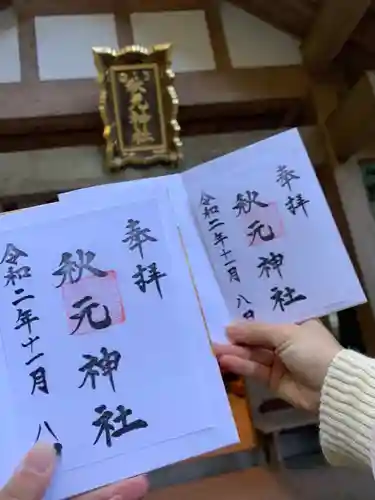 秋元神社
奉拝
秋元神社
令和二年十一月八日
奉拝
秋元神社
令和二年十一月八日